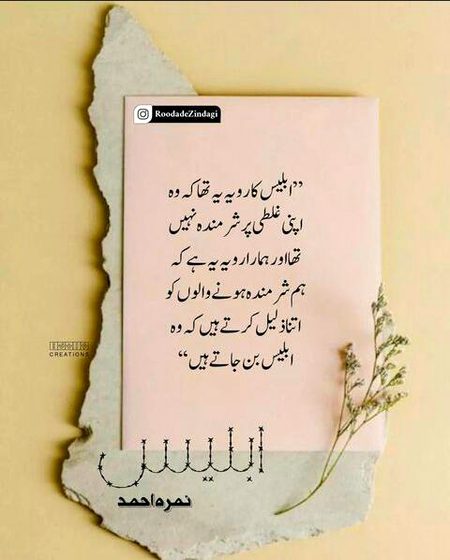 RoodadeZindagi
”ابلیس کا رویہ یہ تھا کہ وہ
اپنی غلطی پر شرمندہ نہیں
تھا اور ہمارا رویہ یہ ہے کہ
ہم شرمندہ ہونے والوں کو
اتنا ذلیل کرتے ہیں کہ وہ
ابلیس بن جاتے ہیں“
CREATIONS
ابلیس
نمرہ احمد